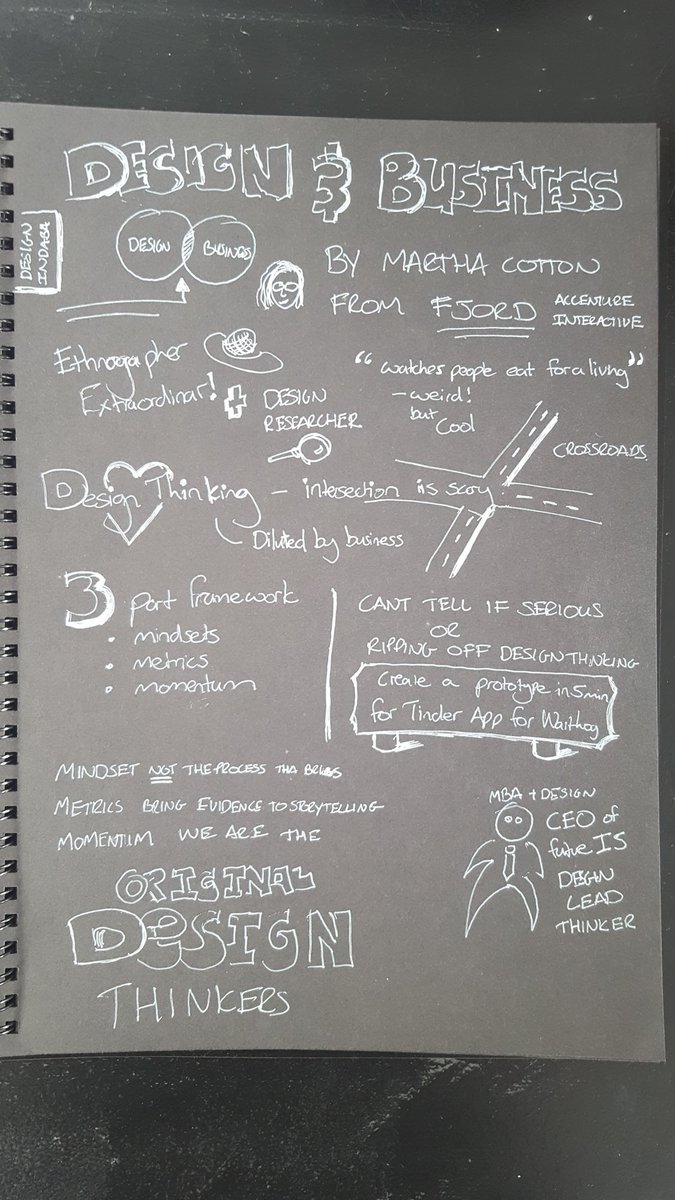 DESIGN & BUSINESS
DESIGN INDABA
DESIGN BUSINESS
BY MARTHA COTTON
FROM FJORD ACCENTURE INTERACTIVE
Ethnographer
Extraordinar!
+ DESIGN
RESEARCHER
"watches people eat for a living"
- weird!
but
Cool
CROSSROADS
Design Thinking - intersection is scary
Diluted by business
3 part framework
• mindsets
• metrics
• momentum
CANT TELL IF SERIOUS
OR
RIPPING OFF DESIGN THINKING
Create a prototype in 5 min
for Tinder App for Warthog
MINDSET NOT THE PROCESS THA
METRICS BRING EVIDENCE TO STORYTELLING
MOMENTUM WE ARE THE
ORIGINAL
DESIGN
THINKERS
MBA + DESIGN
CEO of
future IS
DEGN
LEAD
THINKER